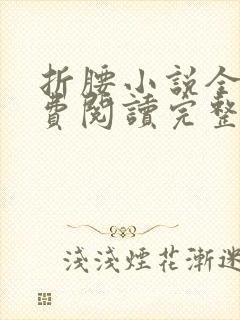 折腰小説全
費閱讀完整
淺淺煙花漸迷